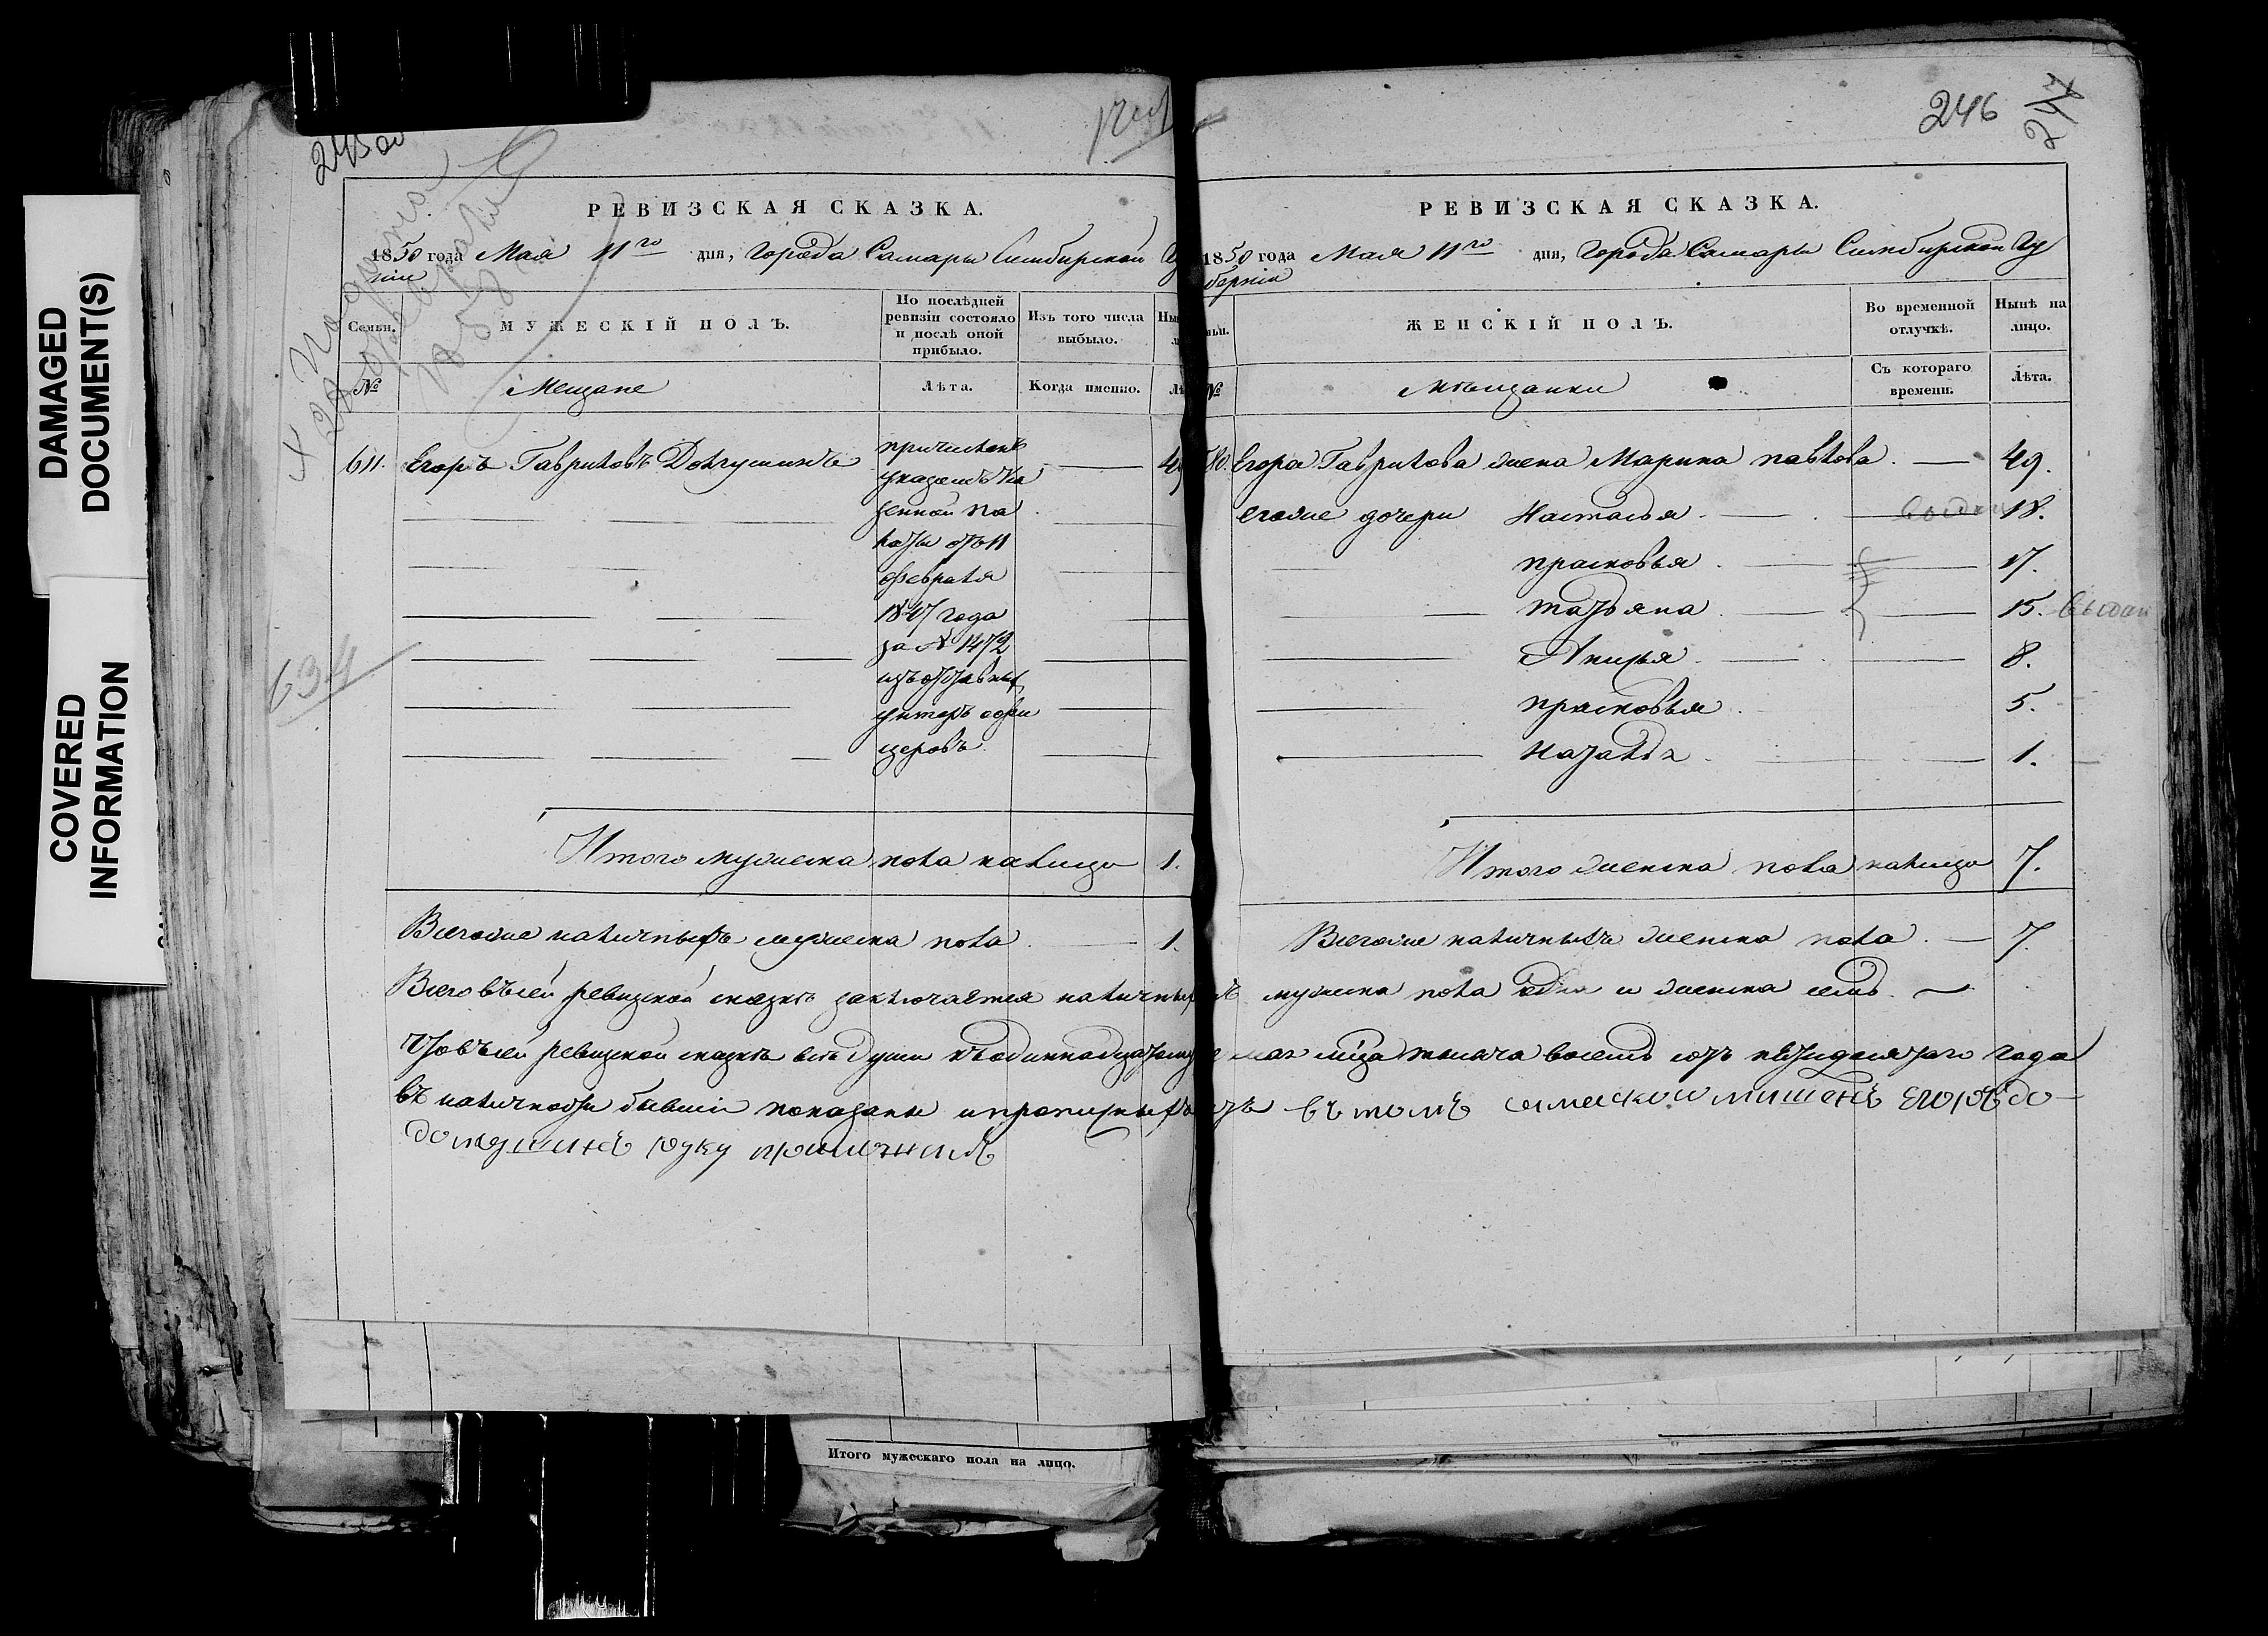 DAMAGED
DOCUMENT(S)
COVERED
INFORMATION
245 об
РЕВИЗСКАЯ СКАЗКА.
1850 года Мая 11го дня, Города Самары Симбирской Гу
ніи
Семьи.
МУЖЕСКІЙ ПОЛЪ.
По послѣдней
ревизіи состояло
и послѣ оной
прибыло.
Изъ того числа
выбыло.
№
Мещане
Лѣта.
Когда именно.
611. Егоръ Гавриловъ Долгушинъ
причисленъ
указомъ Ка
зенной па
латы отъ 11
февраля
1847 года
за № 1472
изъ отставных
унтеръ офи
церовъ.
634
Итого мужеска пола налицо 1.
Всегоже наличныхъ мужеска пола 1.
Всего въ сей ревизской сказкѣ заключается наличныхъ
Что въ сей ревизской сказкѣ всѣ души къ одиннадцатому
въ наличности бывшіе показаны и прописныхъ
долгушинъ руку приложилъ
246
247
РЕВИЗСКАЯ СКАЗКА.
1850 года Мая 11го дня, Города Самары Симбирской Гу
берніи
ЖЕНСКІЙ ПОЛЪ.
Во временной
отлучкѣ.
Нынѣ на
лицо.
№
Мѣщанки
Съ котораго
времени.
Лѣта.
Егора Гаврилова жена Марина павлова. 49.
егоже дочери Настасья 18.
прасковья 17.
татьяна 15. выдан
8.
прасковья 5.
наталья 1.
Итого женска пола налицо 7.
Всегоже наличныхъ женска пола 7.
мужеска пола одна и женска семь.
мая мѣца тысяча восемь сотъ пятидесятаго года
нѣтъ въ томъ самаскои мишенѣ егоръ до
Итого мужескаго пола на лицо.